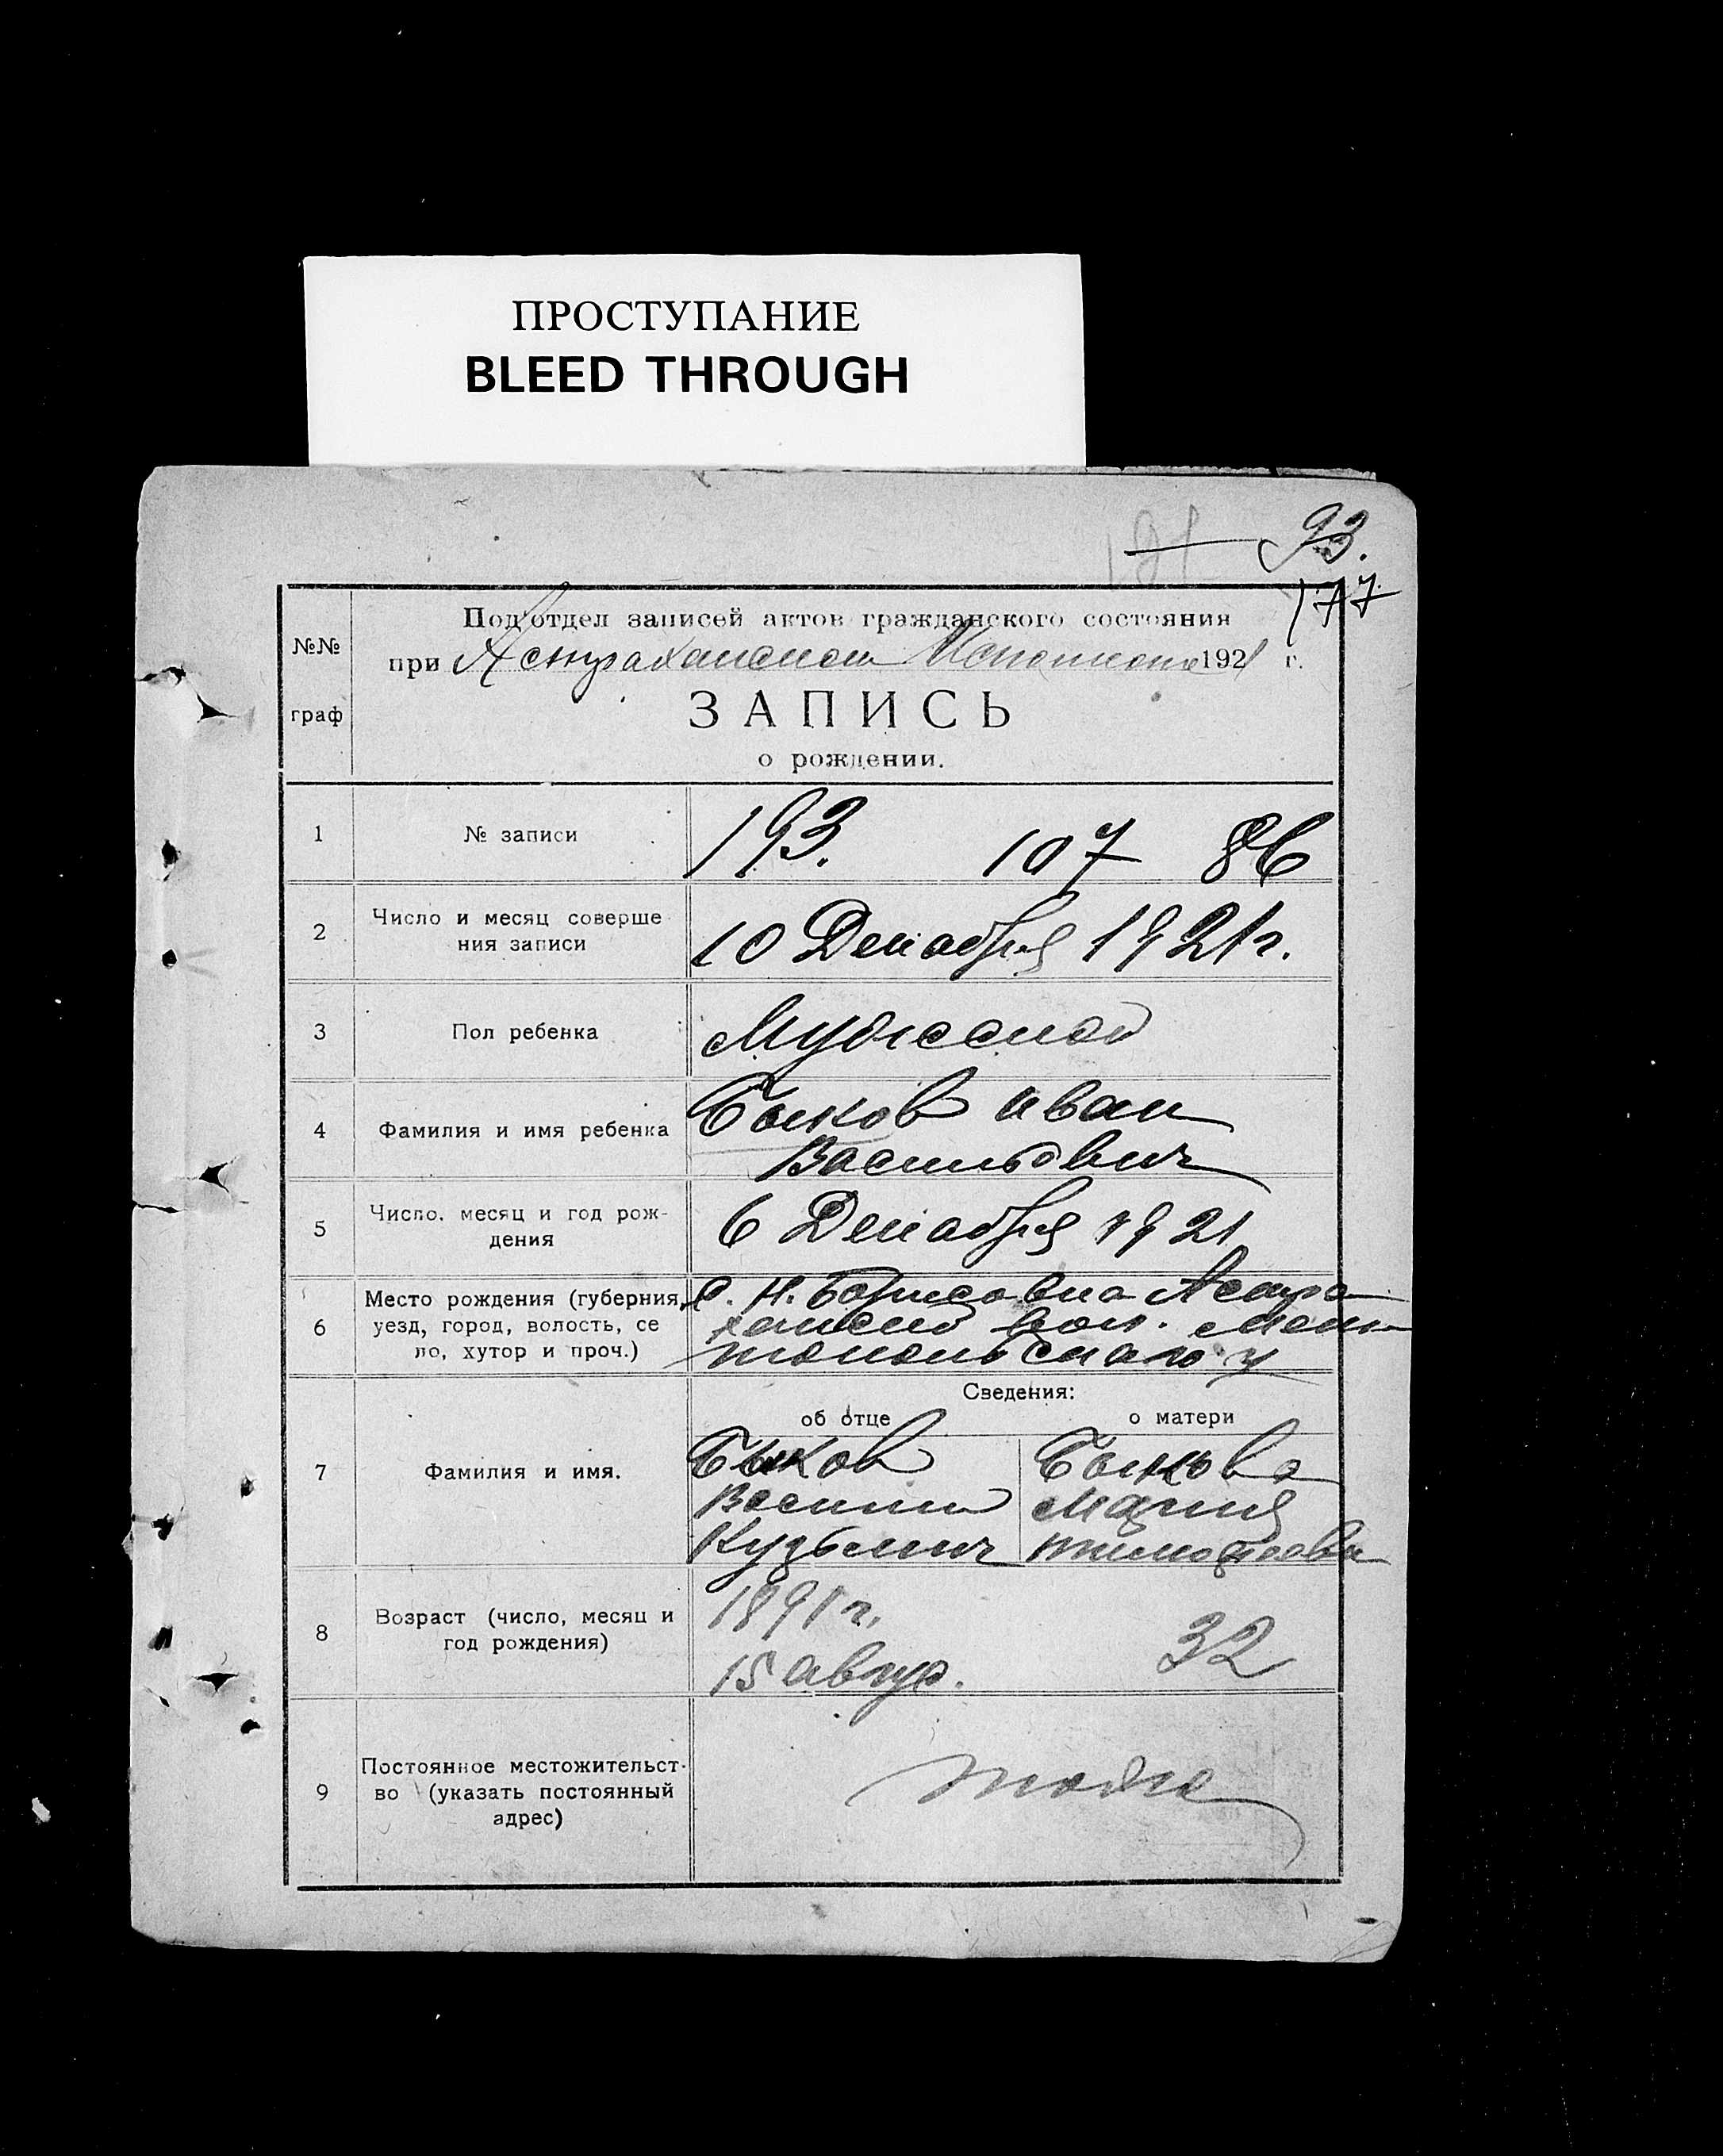 ПРОСТУПАНИЕ
BLEED THROUGH
93.
177
№№
граф
Подотдел записей актов гражданского состояния
при Астраханском 1921 г.
ЗАПИСЬ
о рождении.
1 № записи 193. 107 86
2 Число и месяц соверше
ния записи
10 Декабря 1921 г.
3 Пол ребенка Мужской
4 Фамилия и имя ребенка
Быков Иван
Васильевич
5 Число, месяц и год рож-
дения
6 Декабря 1921
6 Место рождения (губерния,
уезд, город, волость, се
ло, хутор и проч.)
С. Н. Борисовка Астра
ханской вол. Мели
топольского у
Сведения:
об отце о матери
7 Фамилия и имя.
Быков Быкова
Василий Мария
Кузьмич Тимофеевн
8 Возраст (число, месяц и
год рождения)
1891 г. 32
15 авгус.
9 Постоянное местожительст-
во (указать постоянный
адрес)
тоже